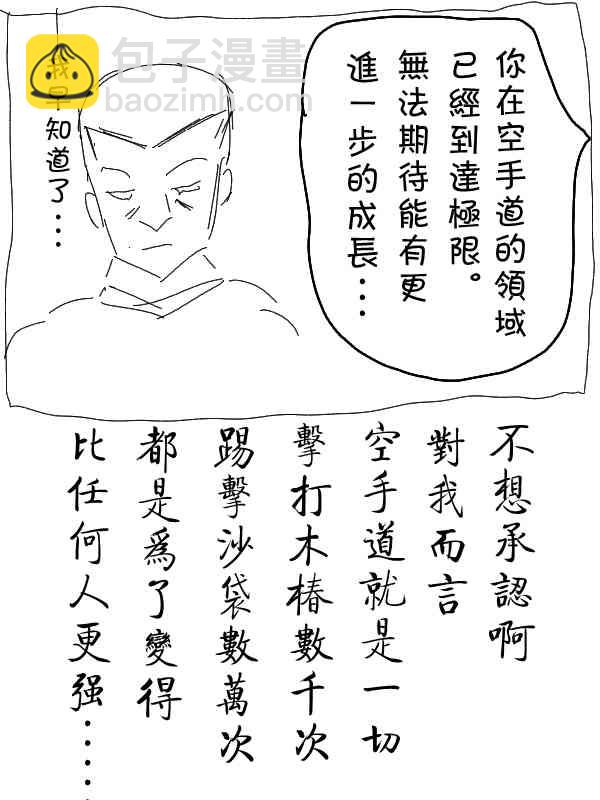 包子漫畫
baozimh.com
你在空手道的領域
已經到達極限。
無法期待能有更
進一步的成長…
我早知道了…
不想承認啊
對我而言
空手道就是一切
擊打木樁數千次
踢擊沙袋數萬次
都是為了變得
比任何人更强……